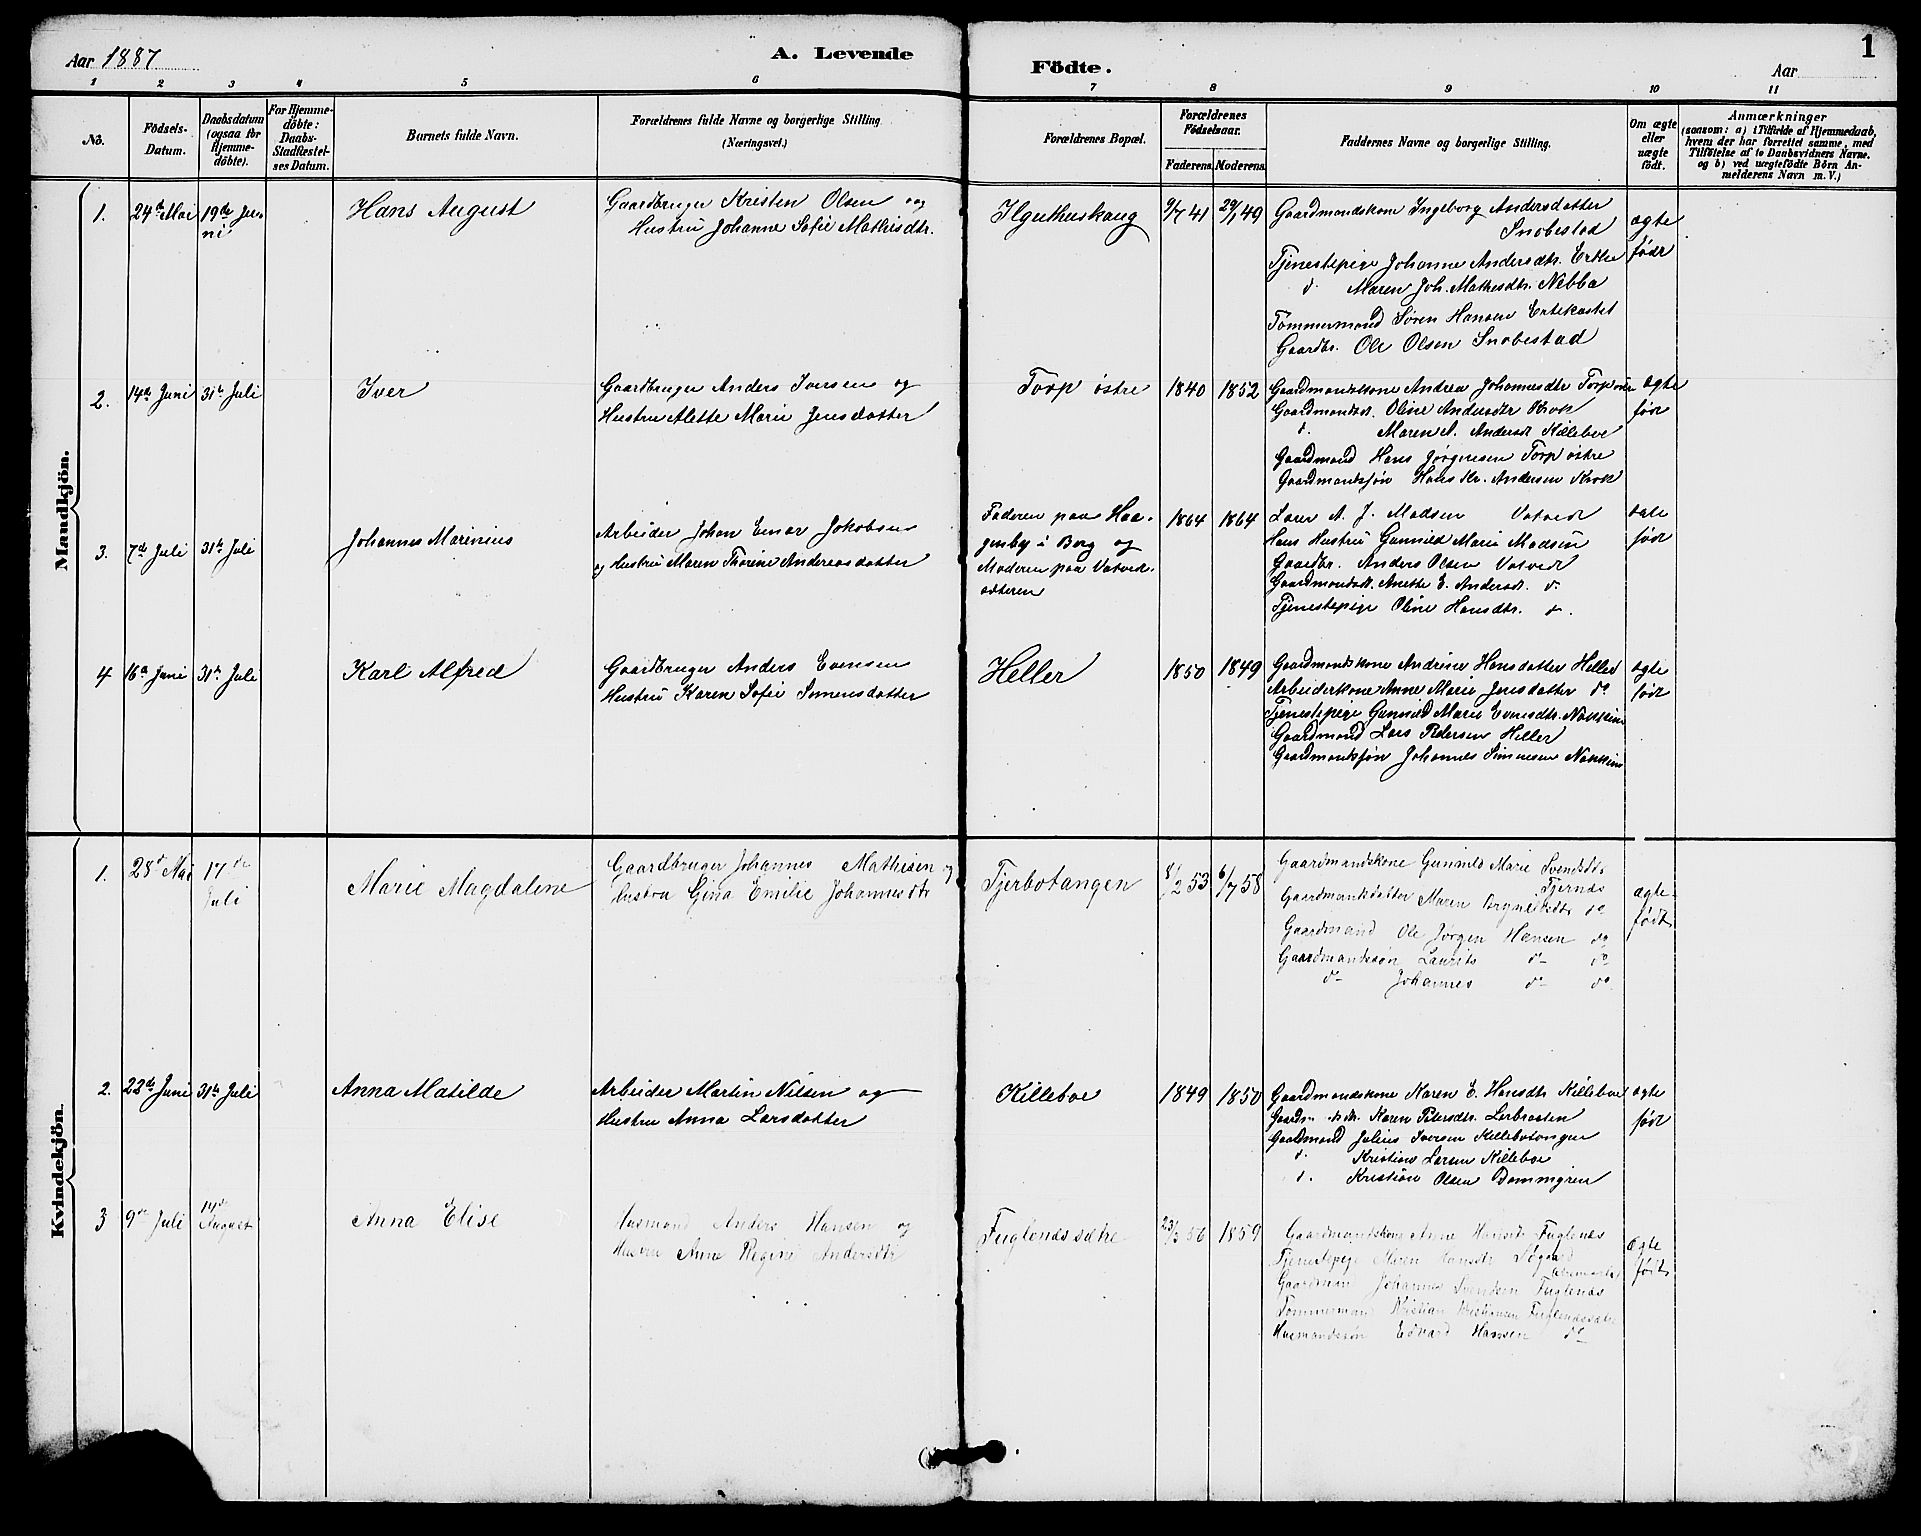 Aar 1887
A. Levende
Födte.
Aar
1
1 2 3 4 5 6 7 8 9 10 11
No.
Födsels-
Datum.
Daabsdatum
(ogsaa for
Hjemme-
döbte).
For Hjemme-
döbte:
Daabs-
Stadfæstel-
ses Datum.
Barnets fulde Navn.
Forældrenes fulde Navne og borgerlige Stilling
(Næringsvei.)
Forældrenes Bopæl.
Forældrenes
Födselsaar.
Faderens Moderens
Faddernes Navne og borgerlige Stilling.
Om ægte
eller
uægte
födt.
Anmærkninger
(saasom: a) i Tilfælde af Hjemmedaab,
hvem der har forrettet samme, med
Tilföielse af to Daabsvidners Navne.
og b) ved uægtefödte Börn An-
melderens Navn m. V.)
Mandkjön.
1.
24de Mai
19de Ju-
ni
Hans August
Gaardbruger Kristen Olsen og
Hustru Johanne Sofie Mathisdtr.
Ilguthuskaug
9/7 41
29/1 49
Gaardmandskone Ingeborg Andersdatter
Snobestad
Tjenestepige Johanne Andersdtr. Erkee
d. Maren Joh. Mathesdtr. Nebba
Tømmermand Søren Hansen Ertekastet
Gaardbr. Ole Olsen Snobestad
ægte
født
2.
14de Juni
31te Juli
Iver
Gaardbruger Anders Iversen og
Hustru Alette Marie Jensdatter
Torp østre
1840
1852
Gaardmandskone Andrea Johannesdtr Torp østr
Gaardmandsdt. Oline Andersdtr Krok
d. Maren A. Andersdt Killeboe
Gaardmand Hans Jørgensen Torp østre
Gaardmandssøn Hans Kr. Andersen Krok
ægte
født
3.
7de Juli
31te Juli
Johannes Marinius
Arbeider Johan Emar Jokobsen
og Hustru Maren Thorine Andreasdatter
Faderen paa Haa-
genby i Borg og
Moderen paa Vatvedt
østeren
1864
1864
Lærer A. J. Madsen Vatvedt
Hans Hustru Gunnild Marie Madsen
Gaardbr. Anders Olsen Vatvedt
Gaardmandsdt. Anette E. Andersdt. d.
Tjenestepige Oline Hansdtr. d.
ægte
født
4
16de Juni
31te Juli
Karl Alfred
Gaardbruger Anders Evensen
Hustru Karen Sofie Simensdatter
Heller
1850
1849
Gaardmandskone Andrine Hansdatter Heller
Arbeiderkone Anne Marie Jensdatter do
Tjenestepige Gunnild Marie Evensdtr. Nokkim
Gaardmand Lars Pedersen Heller
Gaardmandssøn Johannes Simensen Nokkim
ægte
født
Kvindekjön.
1.
28de Mai
17de
Juli
Marie Magdalene
Gaardbruger Johannes Mathisen og
Hustru Gina Emilie Johannesdtr
Tjerbotangen
8/2 53
6/7 58
Gaardmandskone Gunnild Marie Svendsdtr
Tjernes
Gaardmandsdatter Maren Brynildsdtr do
Gaardmand Ole Jørgen Hansen do
Gaardmandssøn Laurits do do
do Johannes do do
ægte-
født
2.
22de Juni
31te Juli
Anna Matilde
Arbeider Martin Nilsen og
Hustru Anna Larsdatter
Killeboe
1849
1850
Gaardmandskone Karen E. Hansdtr Killeboe
Gaardm. dtr. Karen Petersdtr. Lerbraaten
Gaardmand Julius Iversen Killebotangen
d. Kristian Larsen Killeboe
d. Kristian Olsen Dammyren
ægte
født
3
9de Juli
14de
August
Anna Elise
Husmand Anders Hansen og
Hustru Anne Regine Andersdtr
Fuglenessætre
23/3 56
1859
Gaardmandskone Anne Hansdt Fuglenes
Tjenestepige Maren Hansdtr Søgaard
Gaardmand Johannes Svendsen Fuglenes
Tømmermand Kristian Kristiansen Fuglenessæter
Husmandssøn Edvard Hansen do
Ægte
født